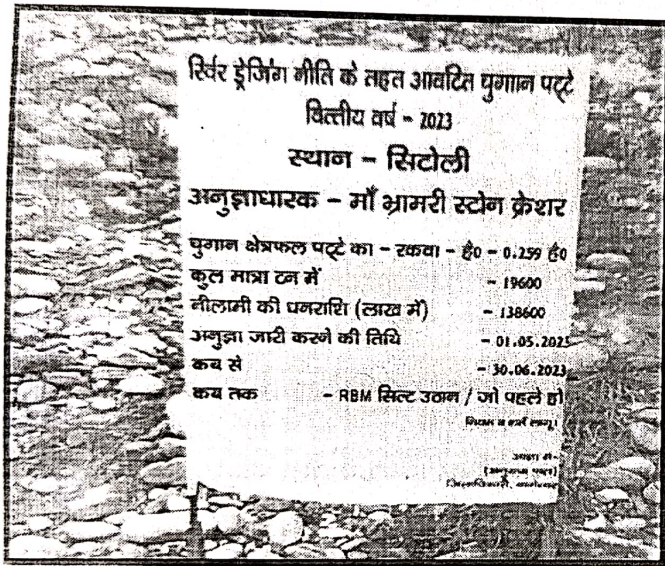 रिवर ड्रेजिंग नीति के तहत आवंटित चुगान पट्टे
वित्तीय वर्ष - 2023
स्थान - सिटोली
अनुज्ञाधारक - माँ भ्रामरी स्टोन क्रेशर
चुगान क्षेत्रफल पट्टे का - रकवा - है0 - 0.259 है0
कुल मात्रा टन में - 19600
नीलामी की धनराशि (लाख में) - 138600
अनुज्ञा जारी करने की तिथि - 01.05.2023
कब से - 30.06.2023
कब तक - RBM सिल्ट उठान / जो पहले हो
नियम व शर्तें लागू।
आज्ञा से-